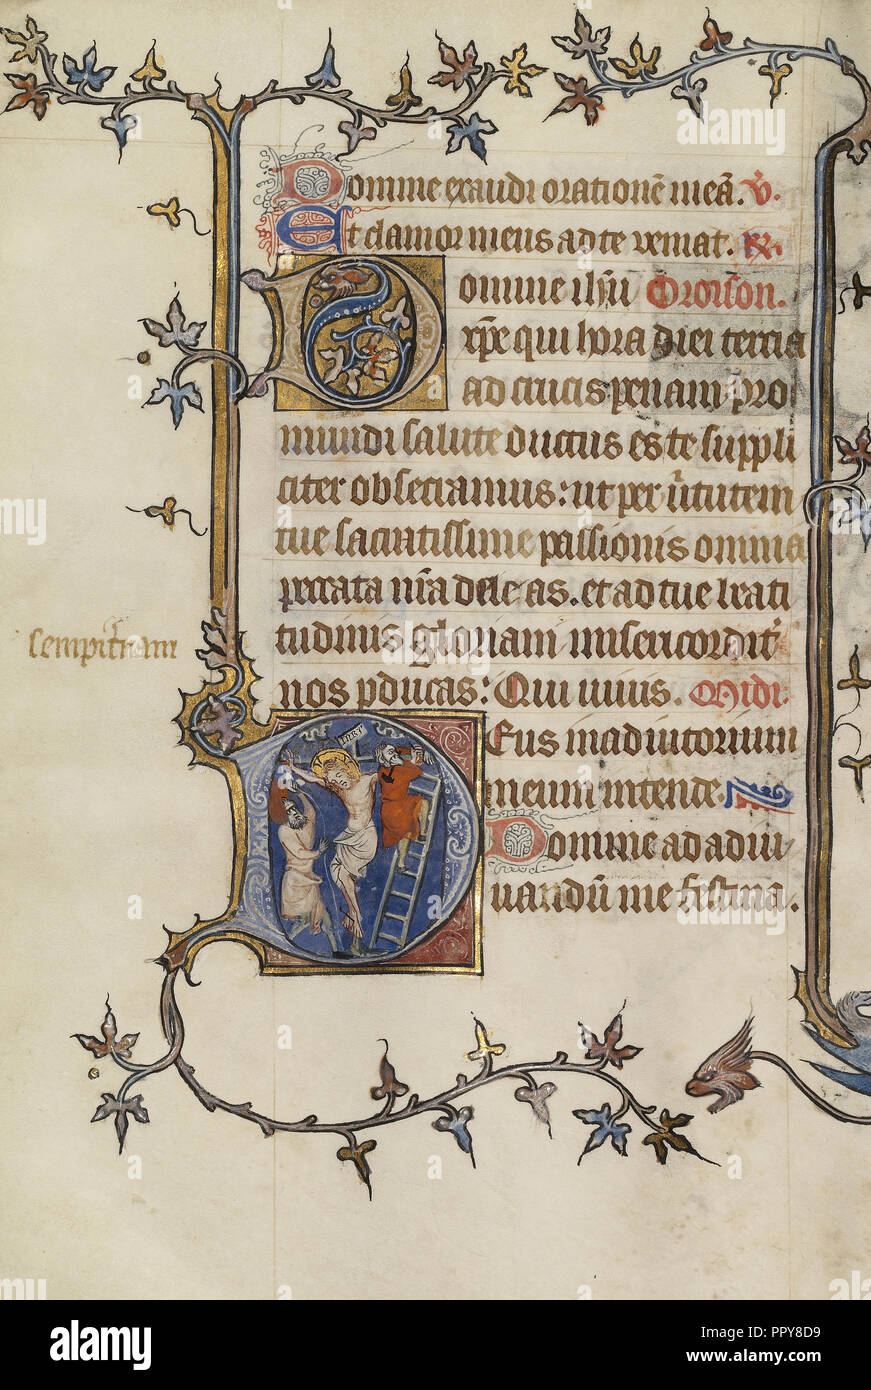 Domine exaudi orationē meā. v̄.
Et clamor meus ad te veniat. R̄.
Domine ihū Oroison.
xp̄e qui hora diei tercia
ad crucis penam pro
mundi salute ductus es te suppli
citer obsecramus: ut per v̓tutem
tue sacratissime passionis omnia
peccata nr̄a deleas. et ad tue beati
tudinis gloriam misericordit̓
sempit̓nam
nos pducas: Qui vivis. Midi.
Deus in adiutorium
meum intende.
Domine ad adiu
uandū me festina.
alamy
Image ID: PPY8D9
www.alamy.com